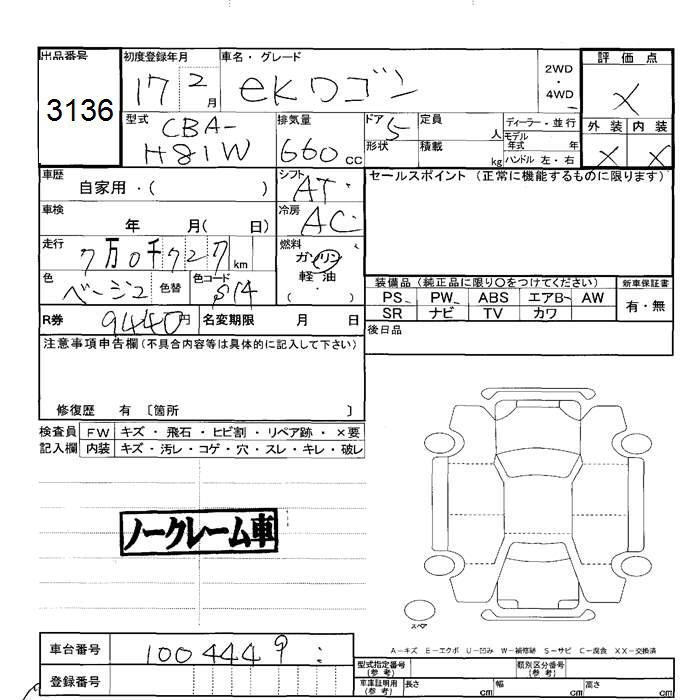 出品番号 初度登録年月 車名・グレード 2WD・4WD 評価点
3136 17 2月 eKワゴン ×
型式 CBA-H81W 排気量 660cc ドア 5 定員 人 ディーラー・並行 外装 内装
形状 積載 kg モデル年式 年 ハンドル 左・右 × ×
車歴 自家用・( ) シフト AT セールスポイント (正常に機能するものに限ります)
車検 年 月( 日) 冷房 AC
走行 7万0千727km 燃料 ガソリン 軽油 ・( )
色 ベージュ 色替 色コード S14
装備品(純正品に限り○をつけてください) 新車保証書
PS PW ABS エアB AW 有・無
SR ナビ TV カワ
R券 9440円 名変期限 月 日 後日品
注意事項申告欄(不具合内容等は具体的に記入して下さい)
修復歴 有 〔箇所 〕
検査員 FW キズ・飛石・ヒビ割・リペア跡・×要
記入欄 内装 キズ・汚レ・コゲ・穴・スレ・キレ・破レ
ノークレーム車
スペア
A-キズ E-エクボ U-凹み W-補修跡 S-サビ C-腐食 XX-交換済
車台番号 1004449
登録番号
型式指定番号(参考) 類別区分番号(参考)
車庫証明用(参考) 長さ cm 幅 cm 高さ cm